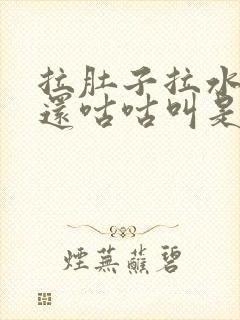 拉肚子拉水
還咕咕叫是
煙蕪蘸碧